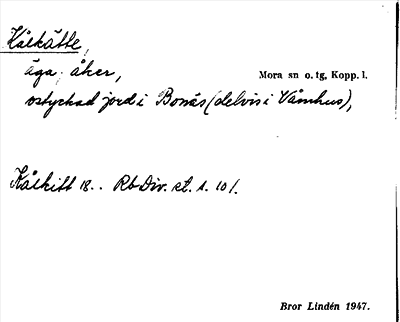 Kålkätte,
äga, åker,
Mora sn o. tg, Kopp. l.
ostyckad jord i Bonäs (delvis i Våmhus),
Kålkitt 18.. Rb Div. st. 1. 101.
Bror Lindén 1947.